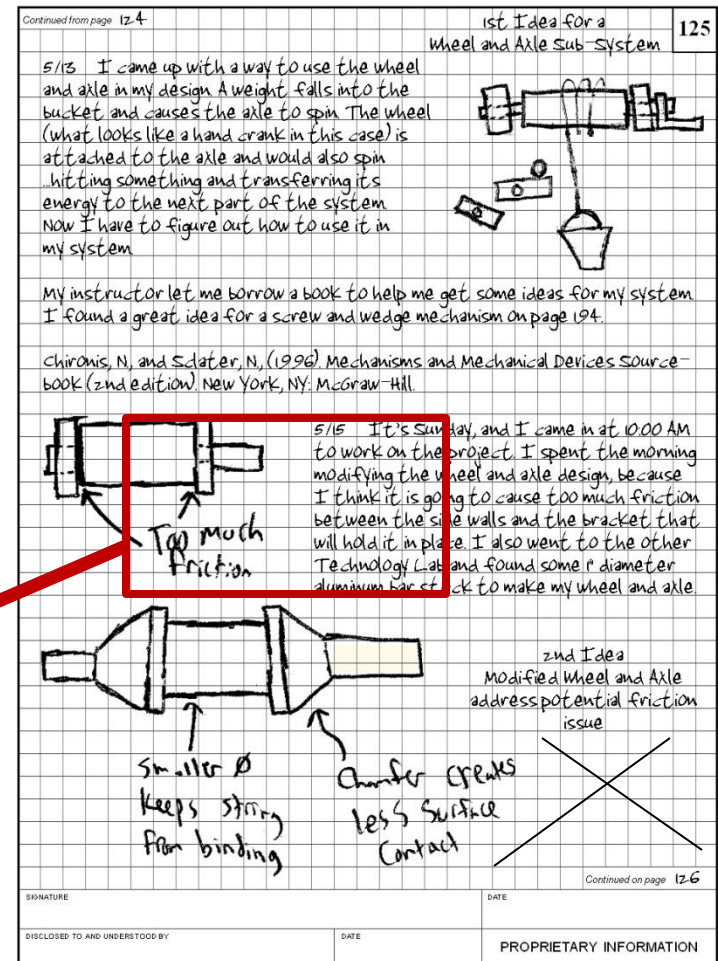 Continued from page 124
1st Idea for a
Wheel and Axle Sub-System
125
5/13 I came up with a way to use the wheel
and axle in my design. A weight falls into the
bucket and causes the axle to spin. The wheel
(what looks like a hand crank in this case) is
attached to the axle and would also spin
...hitting something and transferring its
energy to the next part of the system.
Now I have to figure out how to use it in
my system.
My instructor let me borrow a book to help me get some ideas for my system.
I found a great idea for a screw and wedge mechanism on page 194.
Chironis, N, and Sclater, N, (1996). Mechanisms and Mechanical Devices Source-
book (2nd edition). New York, NY: McGraw-Hill.
Too much
friction
5/15 It's Sunday, and I came in at 10:00 AM
to work on the project. I spent the morning
modifying the wheel and axle design, because
I think it is going to cause too much friction
between the side walls and the bracket that
will hold it in place. I also went to the other
Technology Lab and found some 1" diameter
aluminum bar stock to make my wheel and axle.
2nd Idea
Modified Wheel and Axle
address potential friction
issue
Smaller Ø
keeps string
from binding
Chamfer creates
less surface
contact
Continued on page 126
SIGNATURE
DATE
DISCLOSED TO AND UNDERSTOOD BY
DATE
PROPRIETARY INFORMATION